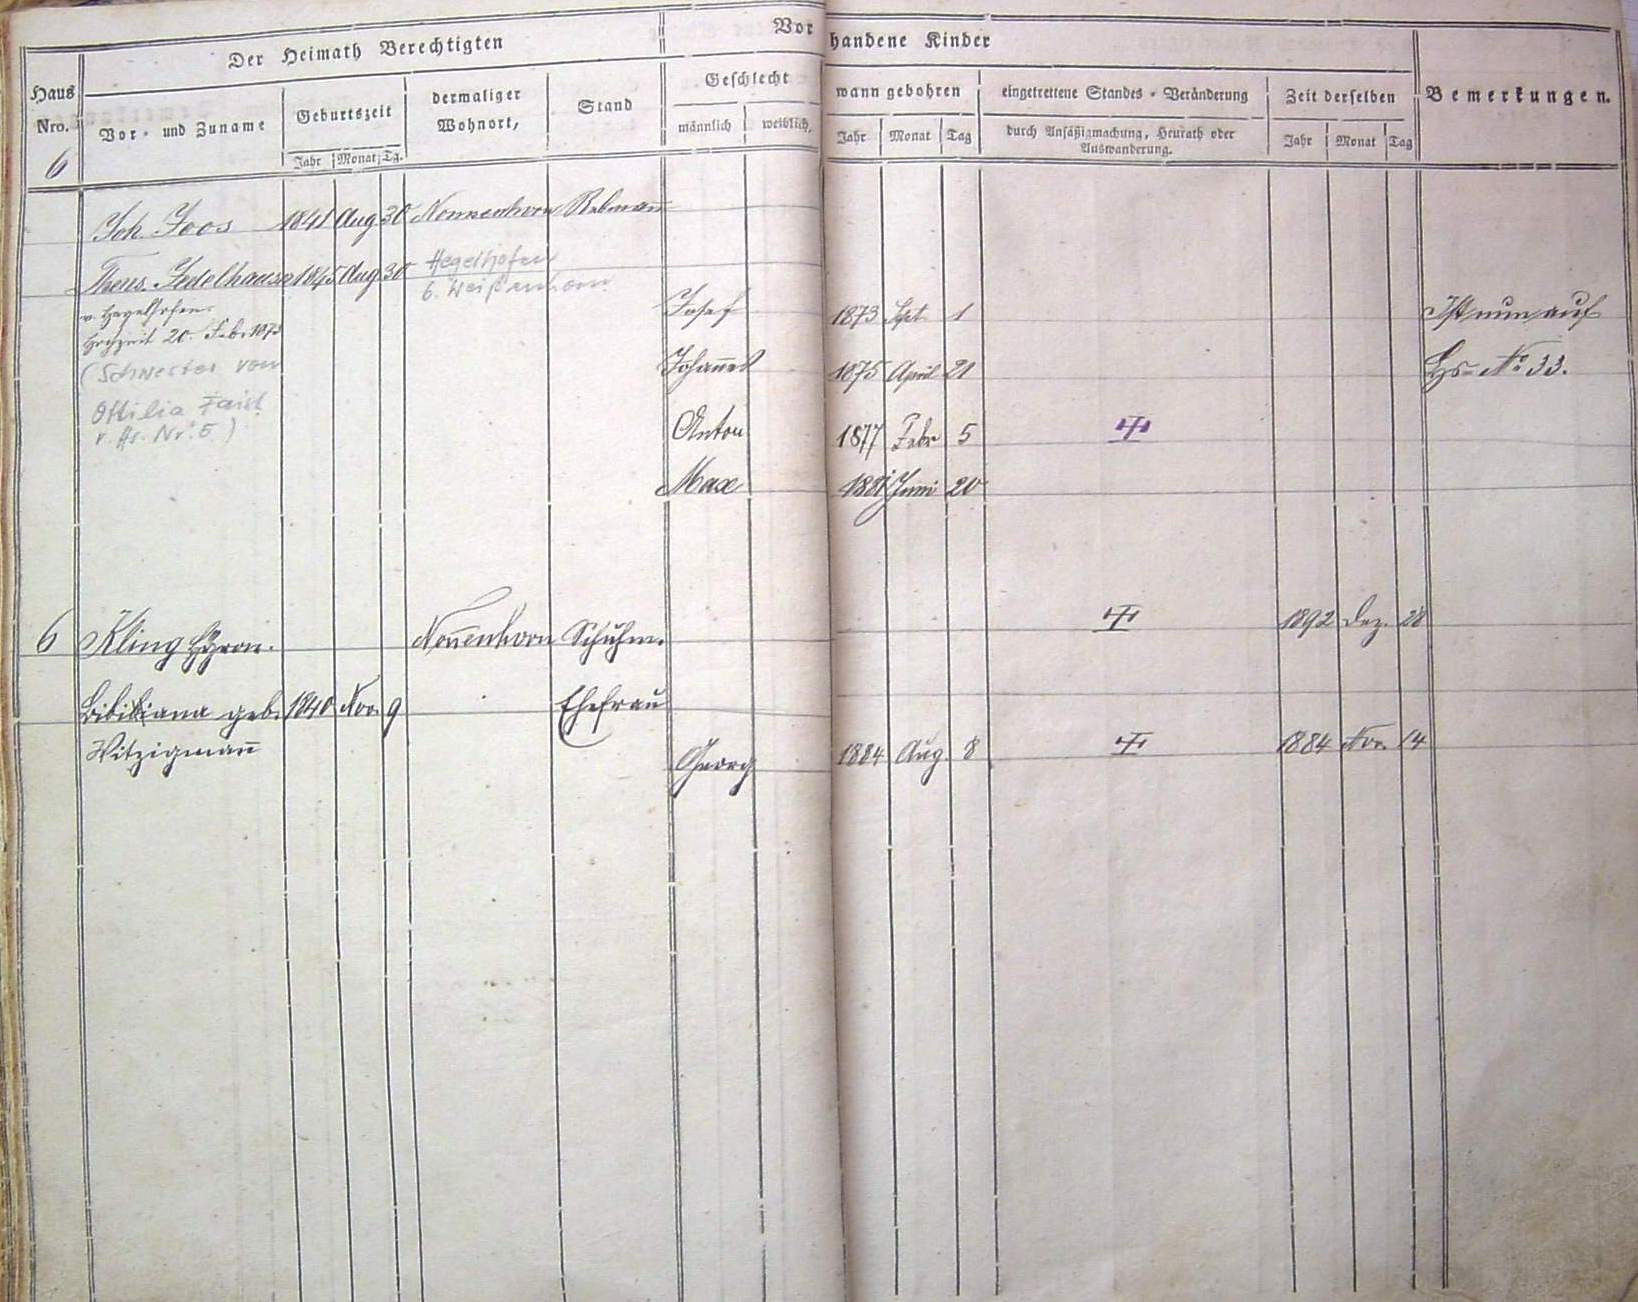 Der Heimath Berechtigten
Vorhandene Kinder
Haus Nro.
Vor- und Zuname
Geburtszeit
Jahr Monat Tg.
dermaliger Wohnort,
Stand
Geschlecht
männlich weiblich,
wann gebohren
Jahr Monat Tag
eingetrettene Standes-Veränderung
durch Ansäßigmachung, Heurath oder
Auswanderung.
Zeit derselben
Jahr Monat Tag
Bemerkungen.
6
Joh. Joos 1841 Aug 30 Nonnenhorn Rebmann
Theres. Jedelhauser 1845 Aug 30 Hegelhofen
b. Weißenhorn
v. Hegelhofen
Hochzeit 20. Feb. 1873
(Schwester von
Ottilia Faist
v. Hs. Nr. 5)
Josef 1873 Sept. 1 Ist nun auf
Johannes 1875 April 21 Hs. No 33.
Anton 1877 Febr 5
Max 1881 Juni 20
6 Kling Hyron. Nonnenhorn Schuhm. 1892 Dez. 28
Bibibiana geb. 1840 Nov. 9 Ehefrau
Witzigmann
Georg 1884 Aug. 8 1884 Nov. 14